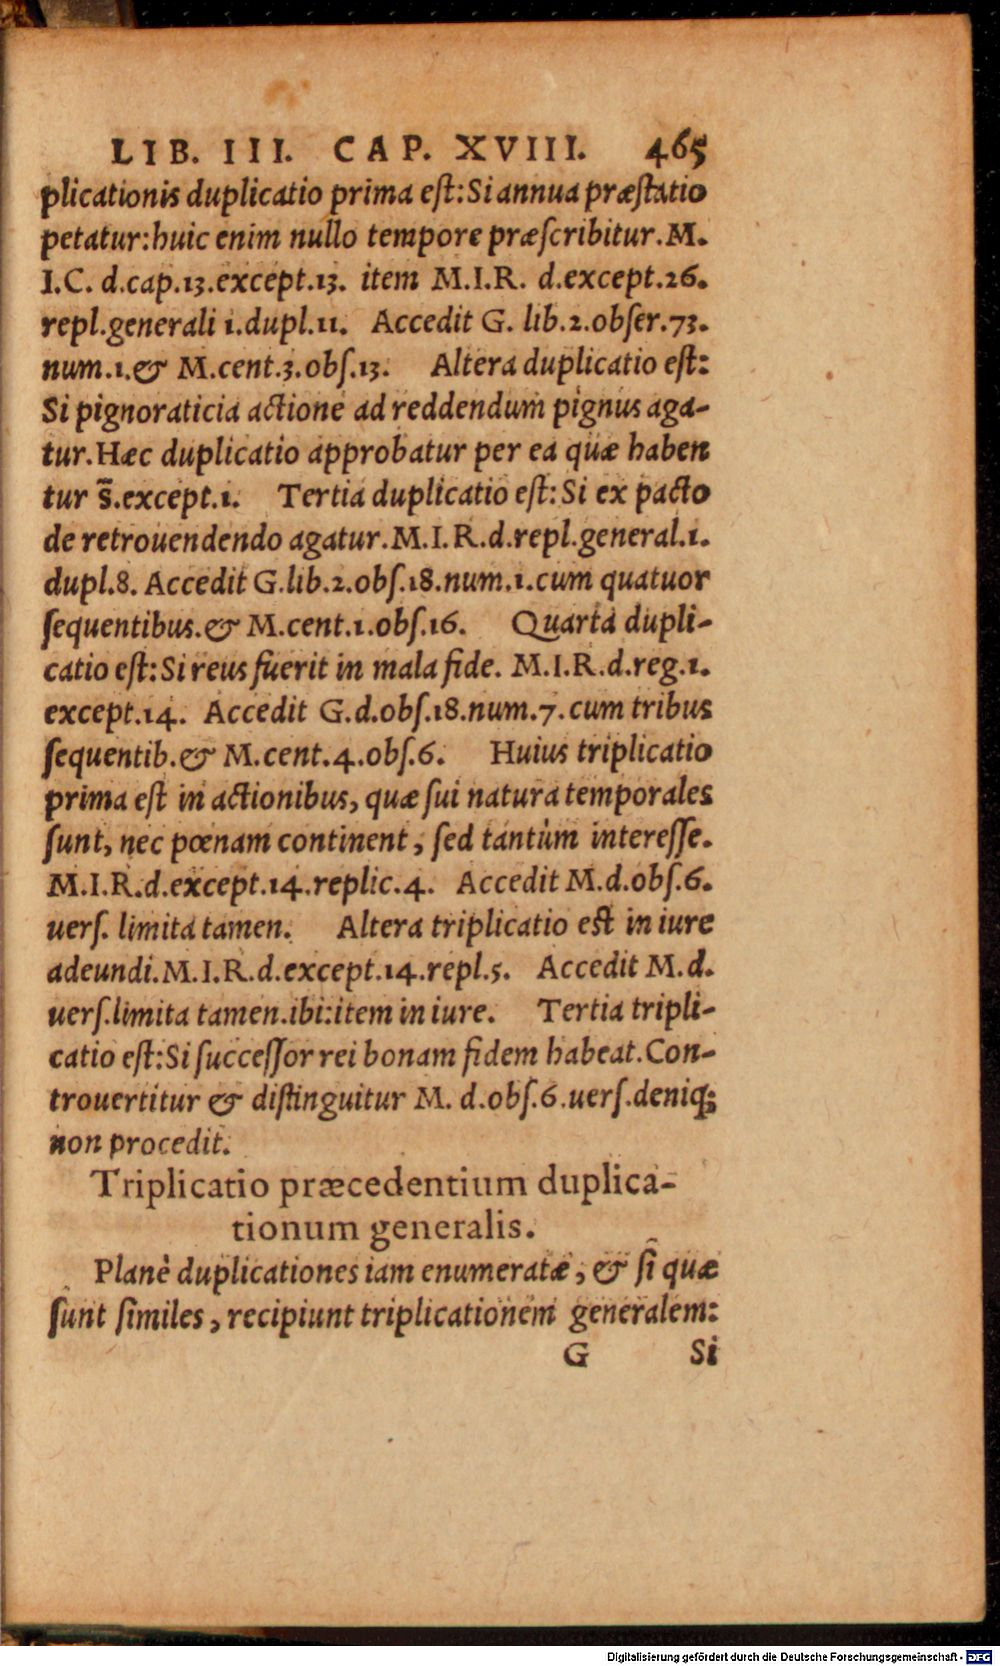 LIB. III. CAP. XVIII. 465
plicationis duplicatio prima eſt: Si annua præſtatio
petatur: huic enim nullo tempore præſcribitur. M.
I.C. d.cap.13.except.13. item M.I.R. d.except.26.
repl.generali 1.dupl.11. Accedit G. lib.2.obſer.73.
num.1.& M.cent.3.obſ.13. Altera duplicatio eſt:
Si pignoraticia actione ad reddendum pignus aga-
tur. Hæc duplicatio approbatur per ea quæ haben
tur s̃.except.1. Tertia duplicatio eſt: Si ex pacto
de retrouendendo agatur. M.I.R.d.repl.general.1.
dupl.8. Accedit G.lib.2.obſ.18.num.1.cum quatuor
ſequentibus.& M.cent.1.obſ.16. Quarta dupli-
catio eſt: Si reus fuerit in mala fide. M.I.R.d.reg.1.
except.14. Accedit G.d.obſ.18.num.7.cum tribus
ſequentib.& M.cent.4.obſ.6. Huius triplicatio
prima eſt in actionibus, quæ ſui natura temporales
ſunt, nec pœnam continent, ſed tantùm intereſſe.
M.I.R.d.except.14.replic.4. Accedit M.d.obſ.6.
uerſ. limita tamen. Altera triplicatio eſt in iure
adeundi. M.I.R.d.except.14.repl.5. Accedit M.d.
uerſ.limita tamen.ibi:item in iure. Tertia tripli-
catio eſt: Si ſucceſſor rei bonam fidem habeat. Con-
trouertitur & diſtinguitur M. d.obſ.6.uerſ.deniq;
non procedit.
Triplicatio præcedentium duplica-
tionum generalis.
Planè duplicationes iam enumeratæ, & ſi quæ
ſunt ſimiles, recipiunt triplicationem generalem:
G Si
Digitalisierung gefördert durch die Deutsche Forschungsgemeinschaft - DFG